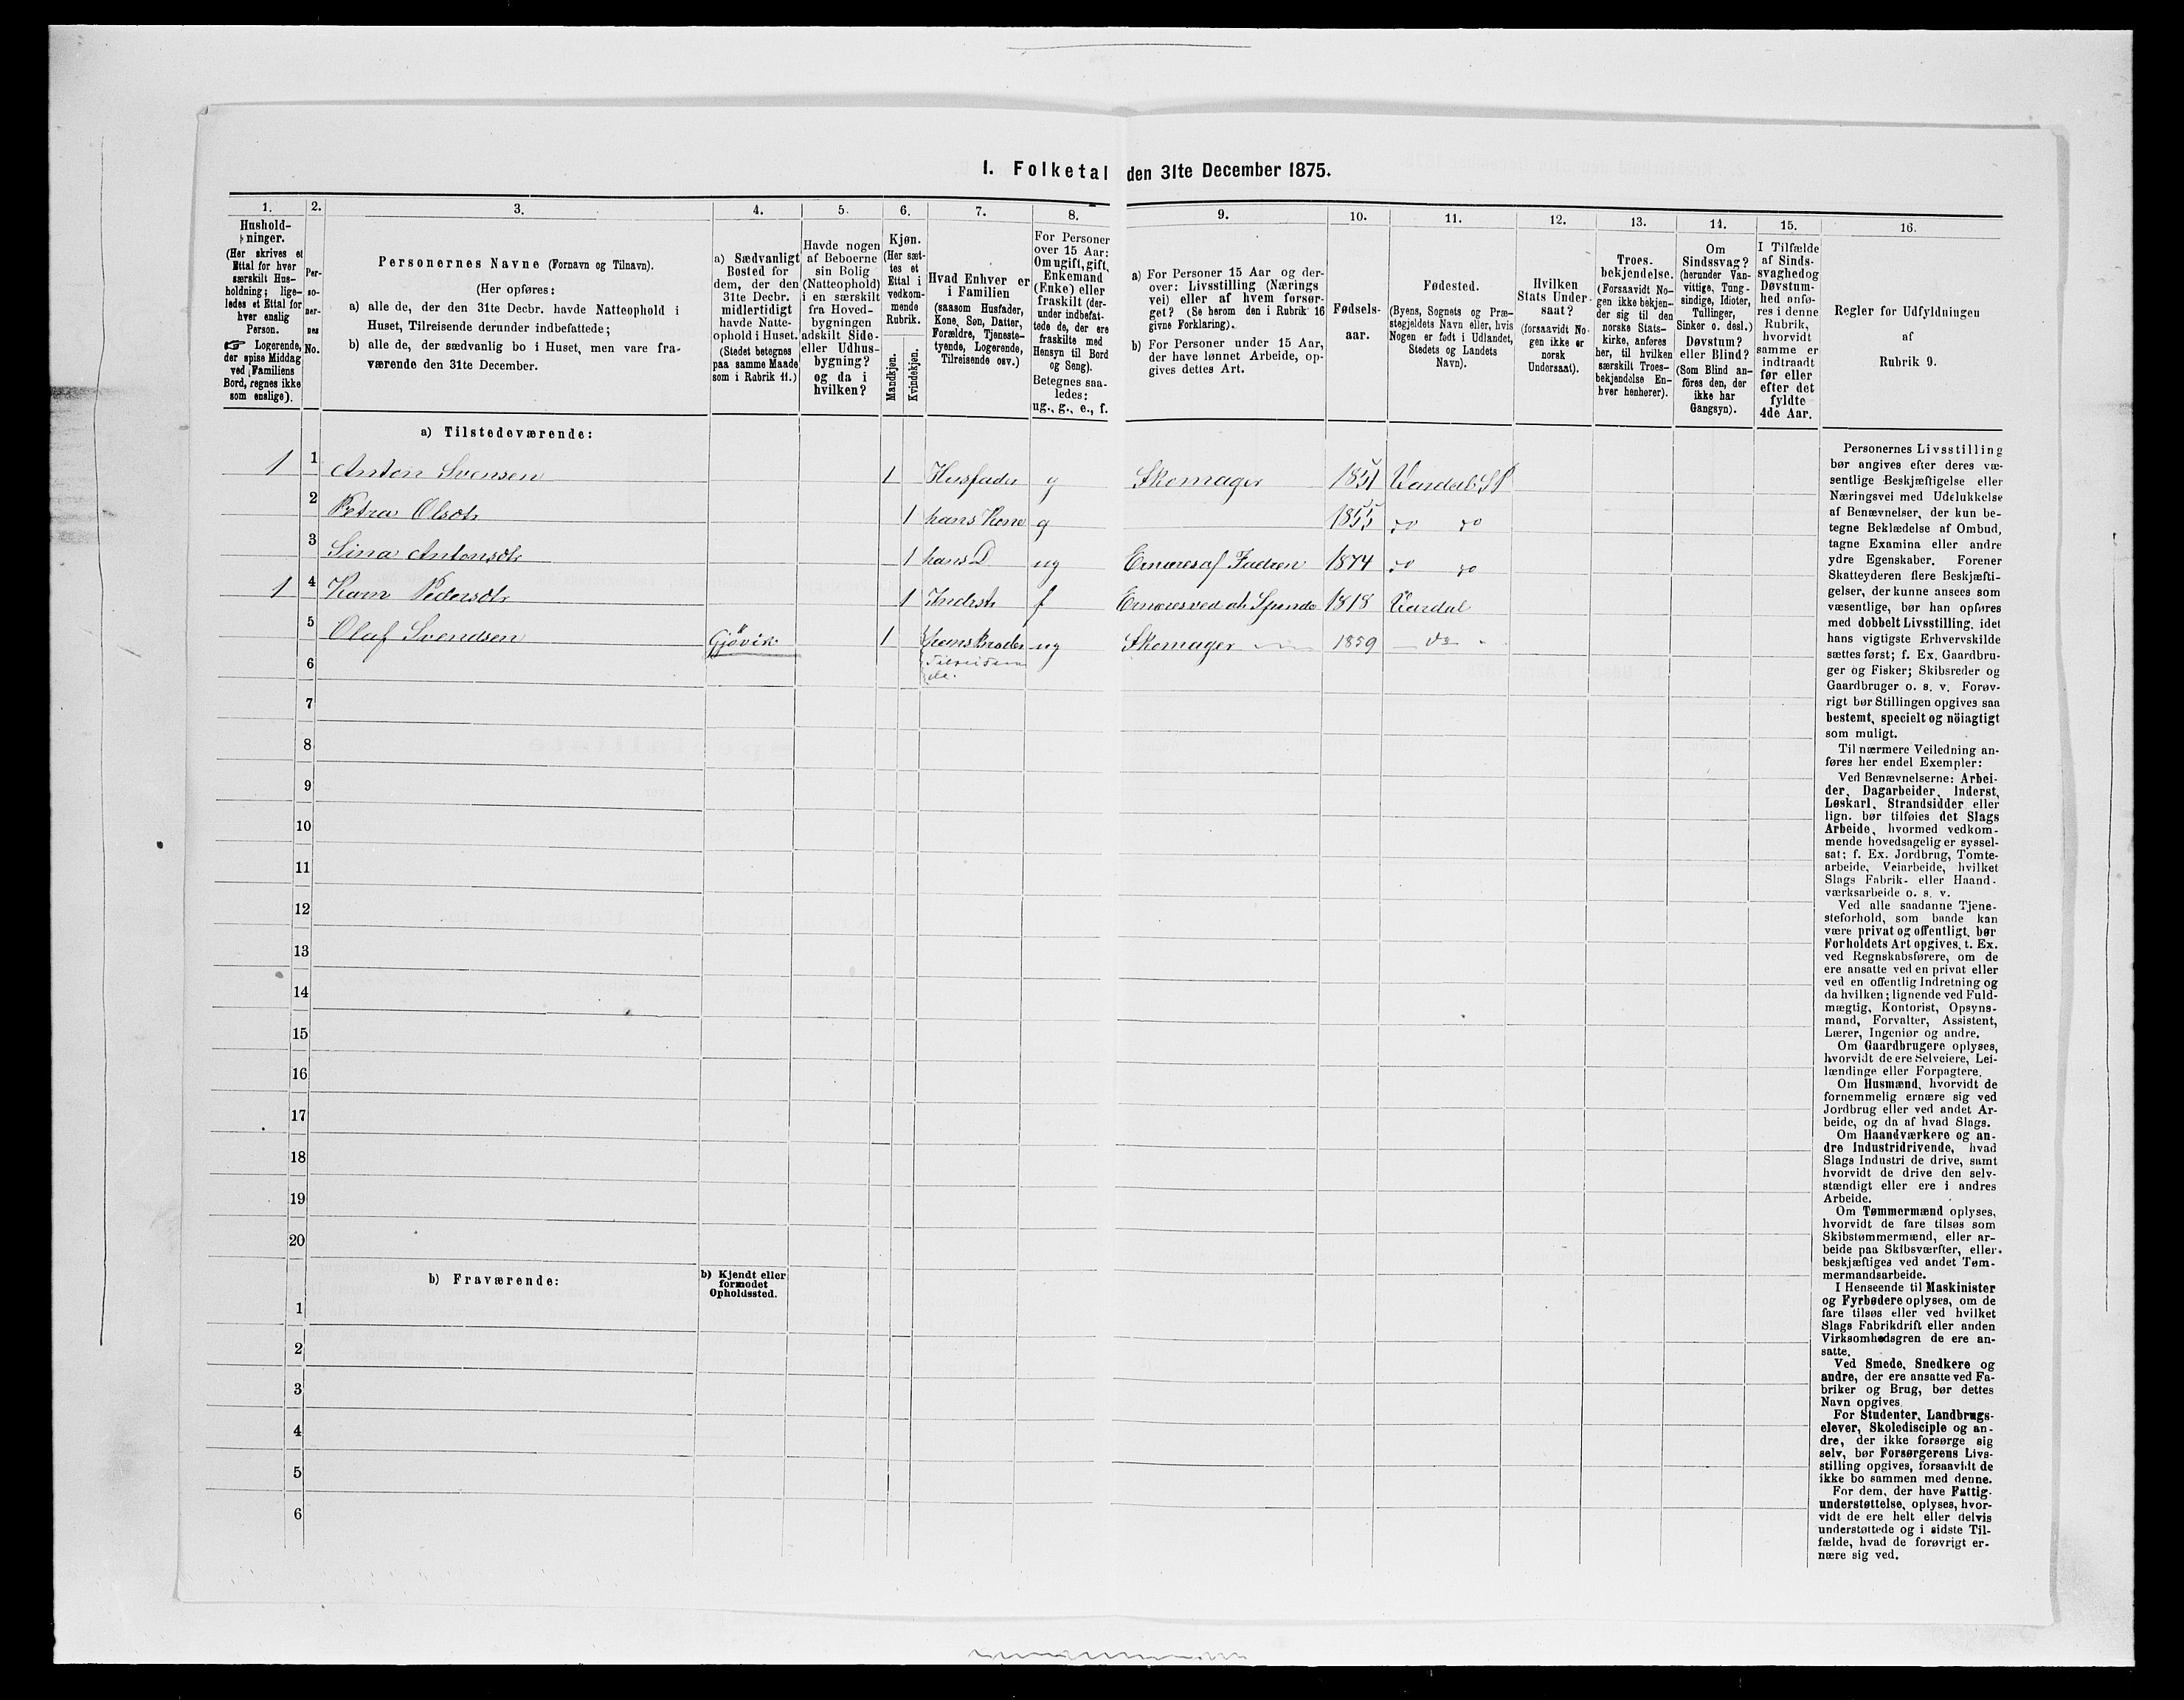 I. Folketal den 31te December 1875.
1. 2. 3. 4. 5. 6. 7. 8. 9. 10. 11. 12. 13. 14. 15. 16.
Hushold-
ninger.
(Her skrives et
Ettal for hver
særskilt Hus-
holdning; lige-
ledes et Ettal for
hver enslig
Person.
☞ Logerende,
der spise Middag
ved Familiens
Bord, regnes ikke
som enslige).
Per-
so-
ner-
nes
No.
Personernes Navne (Fornavn og Tilnavn).
(Her opføres:
a) alle de, der den 31te Decbr. havde Natteophold i
Huset, Tilreisende derunder indbefattede;
b) alle de, der sædvanlig bo i Huset, men vare fra-
værende den 31te December.
a) Sædvanligt
Bosted for
dem, der den
31te Decbr.
midlertidigt
havde Natte-
ophold i Huset.
(Stedet betegnes
paa samme Maade
som i Rubrik 11.)
Havde nogen
af Beboerne
sin Bolig
(Natteophold)
i en særskilt
fra Hoved-
bygningen
adskilt Side-
eller Udhus-
bygning?
og da i
hvilken?
Kjøn.
(Her sæt-
tes et
Ettal i
vedkom-
mende
Rubrik.
Mandkjøn.
Kvindekjøn.
Hvad Enhver er
i Familien
(saasom Husfader,
Kone, Søn, Datter,
Forældre, Tjeneste-
tyende, Logerende,
Tilreisende osv.)
For Personer
over 15 Aar:
Om ugift, gift,
Enkemand
(Enke) eller
fraskilt (der-
under indbefat-
tede de, der ere
fraskilte med
Hensyn til Bord
og Seng).
Betegnes saa-
ledes:
ug., g., e., f.
a) For Personer 15 Aar og der-
over: Livsstilling (Nærings
vei) eller af hvem forsør-
get? (Se herom den i Rubrik 16
givne Forklaring).
b) For Personer under 15 Aar,
der have lønnet Arbeide, op-
gives dettes Art.
Fødsels-
aar.
Fødested.
(Byens, Sognets og Præ-
stegjeldets Navn eller, hvis
Nogen er født i Udlandet,
Stedets og Landets
Navn).
Hvilken
Stats Under-
saat?
(forsaavidt No-
gen ikke er
norsk
Undersaat).
Troes-
bekjendelse.
(Forsaavidt No-
gen ikke bekjen-
der sig til den
norske Stats-
kirke, anføres
her, til hvilken
særskilt Troes-
bekjendelse En-
hver henhører).
Om
Sindssvag?
(herunder Van-
vittige, Tung-
sindige, Idioter,
Tullinger,
Sinker o. desl.)
Døvstum?
eller Blind?
(Som Blind an-
föres den, der
ikke har
Gangsyn).
I Tilfælde
af Sinds-
svaghed og
Døvstum-
hed anfø-
res i denne
Rubrik,
hvorvidt
samme er
indtraadt
før eller
efter det
fyldte
4de Aar.
Regler for Udfyldningen
af
Rubrik 9.
a) Tilstedeværende:
1 1 Anton Svensen 1 Husfader g Skomager 1851 Vardal SP
2 Petra Olsdtr 1 hans Kone g 1855 do do
3 Sina Antonsdtr 1 hans D ug Ernæres af Fadren 1874 do do
1 4 Karn Pedersdtr 1 Inderst f Ernæres ved at Spinde 1818 Vardal
5 Olaf Svendsen Gjøvik 1 hans Broder ug Skomager 1859 do
6 Tilreisen
de.
7
8
9
10
11
12
13
14
15
16
17
18
19
20
b) Fraværende:
b) Kjendt eller
formodet
Opholdssted.
1
2
3
4
5
6
Personernes Livsstilling
bør angives efter deres væ-
sentlige Beskjæftigelse eller
Næringsvei med Udelukkelse
af Benævnelser, der kun be-
tegne Beklædelse af Ombud,
tagne Examina eller andre
ydre Egenskaber. Forener
Skatteyderen flere Beskjæfti-
gelser, der kunne ansees som
væsentlige, bør han opføres
med dobbelt Livsstilling, idet
hans vigtigste Erhvervskilde
sættes først; f. Ex. Gaardbru-
ger og Fisker; Skibsreder og
Gaardbruger o. s. v. Forøv-
rigt bør Stillingen opgives saa
bestemt, specielt og nöiagtigt
som muligt.
Til nærmere Veiledning an-
føres her endel Exempler:
Ved Benævnelserne: Arbei-
der, Dagarbeider, Inderst,
Løskarl, Strandsidder eller
lign. bør tilføies det Slags
Arbeide, hvormed vedkom-
mende hovedsagelig er syssel-
sat; f. Ex. Jordbrug, Tomte-
arbeide, Veiarbeide, hvilket
Slags Fabrik- eller Haand-
værksarbeide o. s. v.
Ved alle saadanne Tjene-
steforhold, som baade kan
være privat og offentligt, bør
Forholdets Art opgives, t. Ex.
ved Regnskabsførere, om de
ere ansatte ved en privat eller
ved en offentlig Indretning og
da hvilken; lignende ved Fuld-
mægtig, Kontorist, Opsyns-
mand, Forvalter, Assistent,
Lærer, Ingeniør og andre.
Om Gaardbrugere oplyses,
hvorvidt de ere Selveiere, Lei-
lændinge eller Forpagtere.
Om Husmænd, hvorvidt de
fornemmelig ernære sig ved
Jordbrug eller ved andet Ar-
beide, og da af hvad Slags.
Om Haandværkere og an-
dre Industridrivende, hvad
Slags Industri de drive, samt
hvorvidt de drive den selv-
stændigt eller ere i andres
Arbeide.
Om Tømmermænd oplyses,
hvorvidt de fare tilsøs som
Skibstømmermænd, eller ar-
beide paa Skibsværfter, eller
beskjæftiges ved andet Tøm-
mermandsarbeide.
I Henseende til Maskinister
og Fyrbødere oplyses, om de
fare tilsøs eller ved hvilket
Slags Fabrikdrift eller anden
Virksomhedsgren de ere an-
satte.
Ved Smede, Snedkere og
andre, der ere ansatte ved Fa-
briker og Brug, bør dettes
Navn opgives.
For Studenter, Landbrugs-
elever, Skoledisciple og an-
dre, der ikke forsørge sig
selv, bør Forsørgerens Livs-
stilling opgives, forsaavidt de
ikke bo sammen med denne.
For dem, der have Fattig-
understøttelse, oplyses, hvor-
vidt de ere helt eller delvis
understøttede og i sidste Til-
fælde, hvad de forøvrigt er-
nære sig ved.